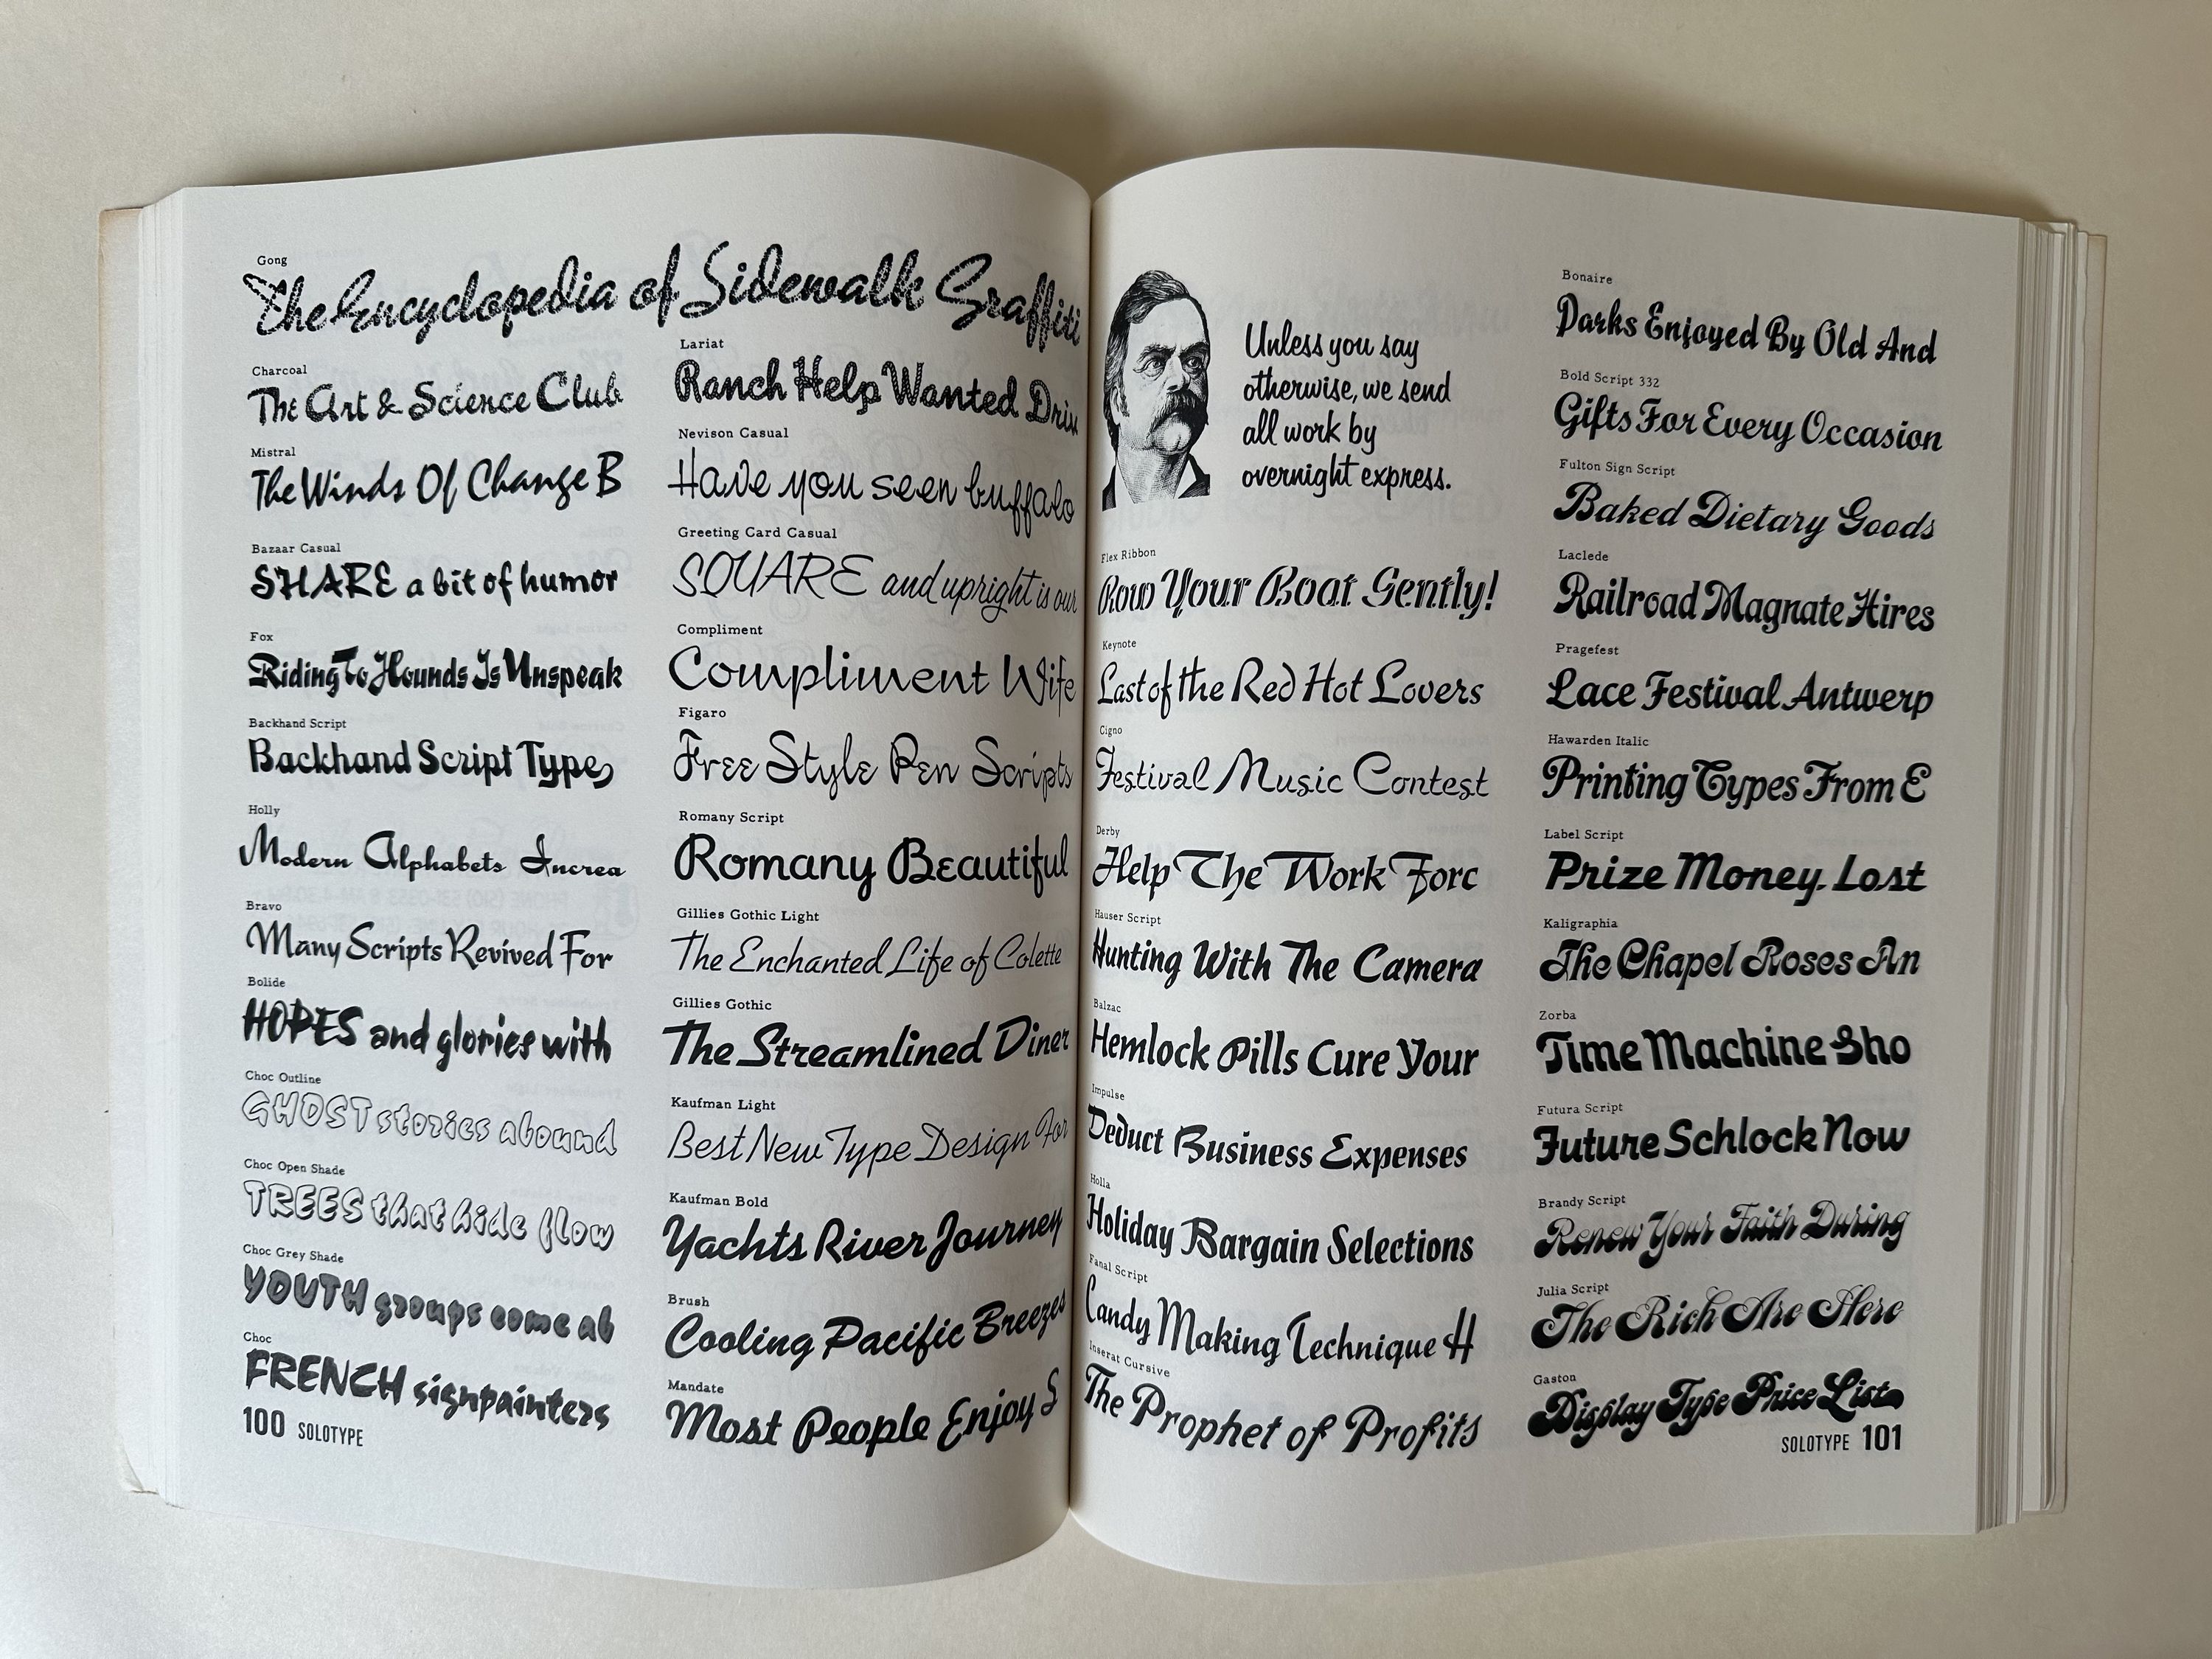 Gong
The Encyclopedia of Sidewalk Graffiti
Charcoal
The Art & Science Club
Mistral
The Winds Of Change B
Bazaar Casual
SHARE a bit of humor
Fox
Riding To Hounds Is Unspeak
Backhand Script
Backhand Script Type
Holly
Modern Alphabets Increa
Bravo
Many Scripts Revived For
Bolide
HOPES and glories with
Choc Outline
GHOST stories abound
Choc Open Shade
TREES that hide flow
Choc Grey Shade
YOUTH groups come ab
Choc
FRENCH signpainters
100 SOLOTYPE
Lariat
Ranch Help Wanted Driv
Nevison Casual
Have you seen buffalo
Greeting Card Casual
SQUARE and upright is our
Compliment
Compliment Wife
Figaro
Free Style Pen Scripts
Romany Script
Romany Beautiful
Gillies Gothic Light
The Enchanted Life of Colette
Gillies Gothic
The Streamlined Diner
Kaufman Light
Best New Type Design For
Kaufman Bold
Yachts River Journey
Brush
Cooling Pacific Breezes
Mandate
Most People Enjoy S
Unless you say
otherwise, we send
all work by
overnight express.
Flex Ribbon
Row Your Boat Gently!
Keynote
Last of the Red Hot Lovers
Cigno
Festival Music Contest
Derby
Help The Work Forc
Hauser Script
Hunting With The Camera
Balzac
Hemlock Pills Cure Your
Impulse
Deduct Business Expenses
Holla
Holiday Bargain Selections
Fanal Script
Candy Making Technique H
Inserat Cursive
The Prophet of Profits
Bonaire
Parks Enjoyed By Old And
Bold Script 332
Gifts For Every Occasion
Fulton Sign Script
Baked Dietary Goods
Laclede
Railroad Magnate Hires
Pragefest
Lace Festival Antwerp
Hawarden Italic
Printing Types From E
Label Script
Prize Money Lost
Kaligraphia
The Chapel Roses An
Zorba
Time Machine Sho
Futura Script
Future Schlock Now
Brandy Script
Renew Your Faith During
Julia Script
The Rich Are Here
Gaston
Display Type Price List
SOLOTYPE 101